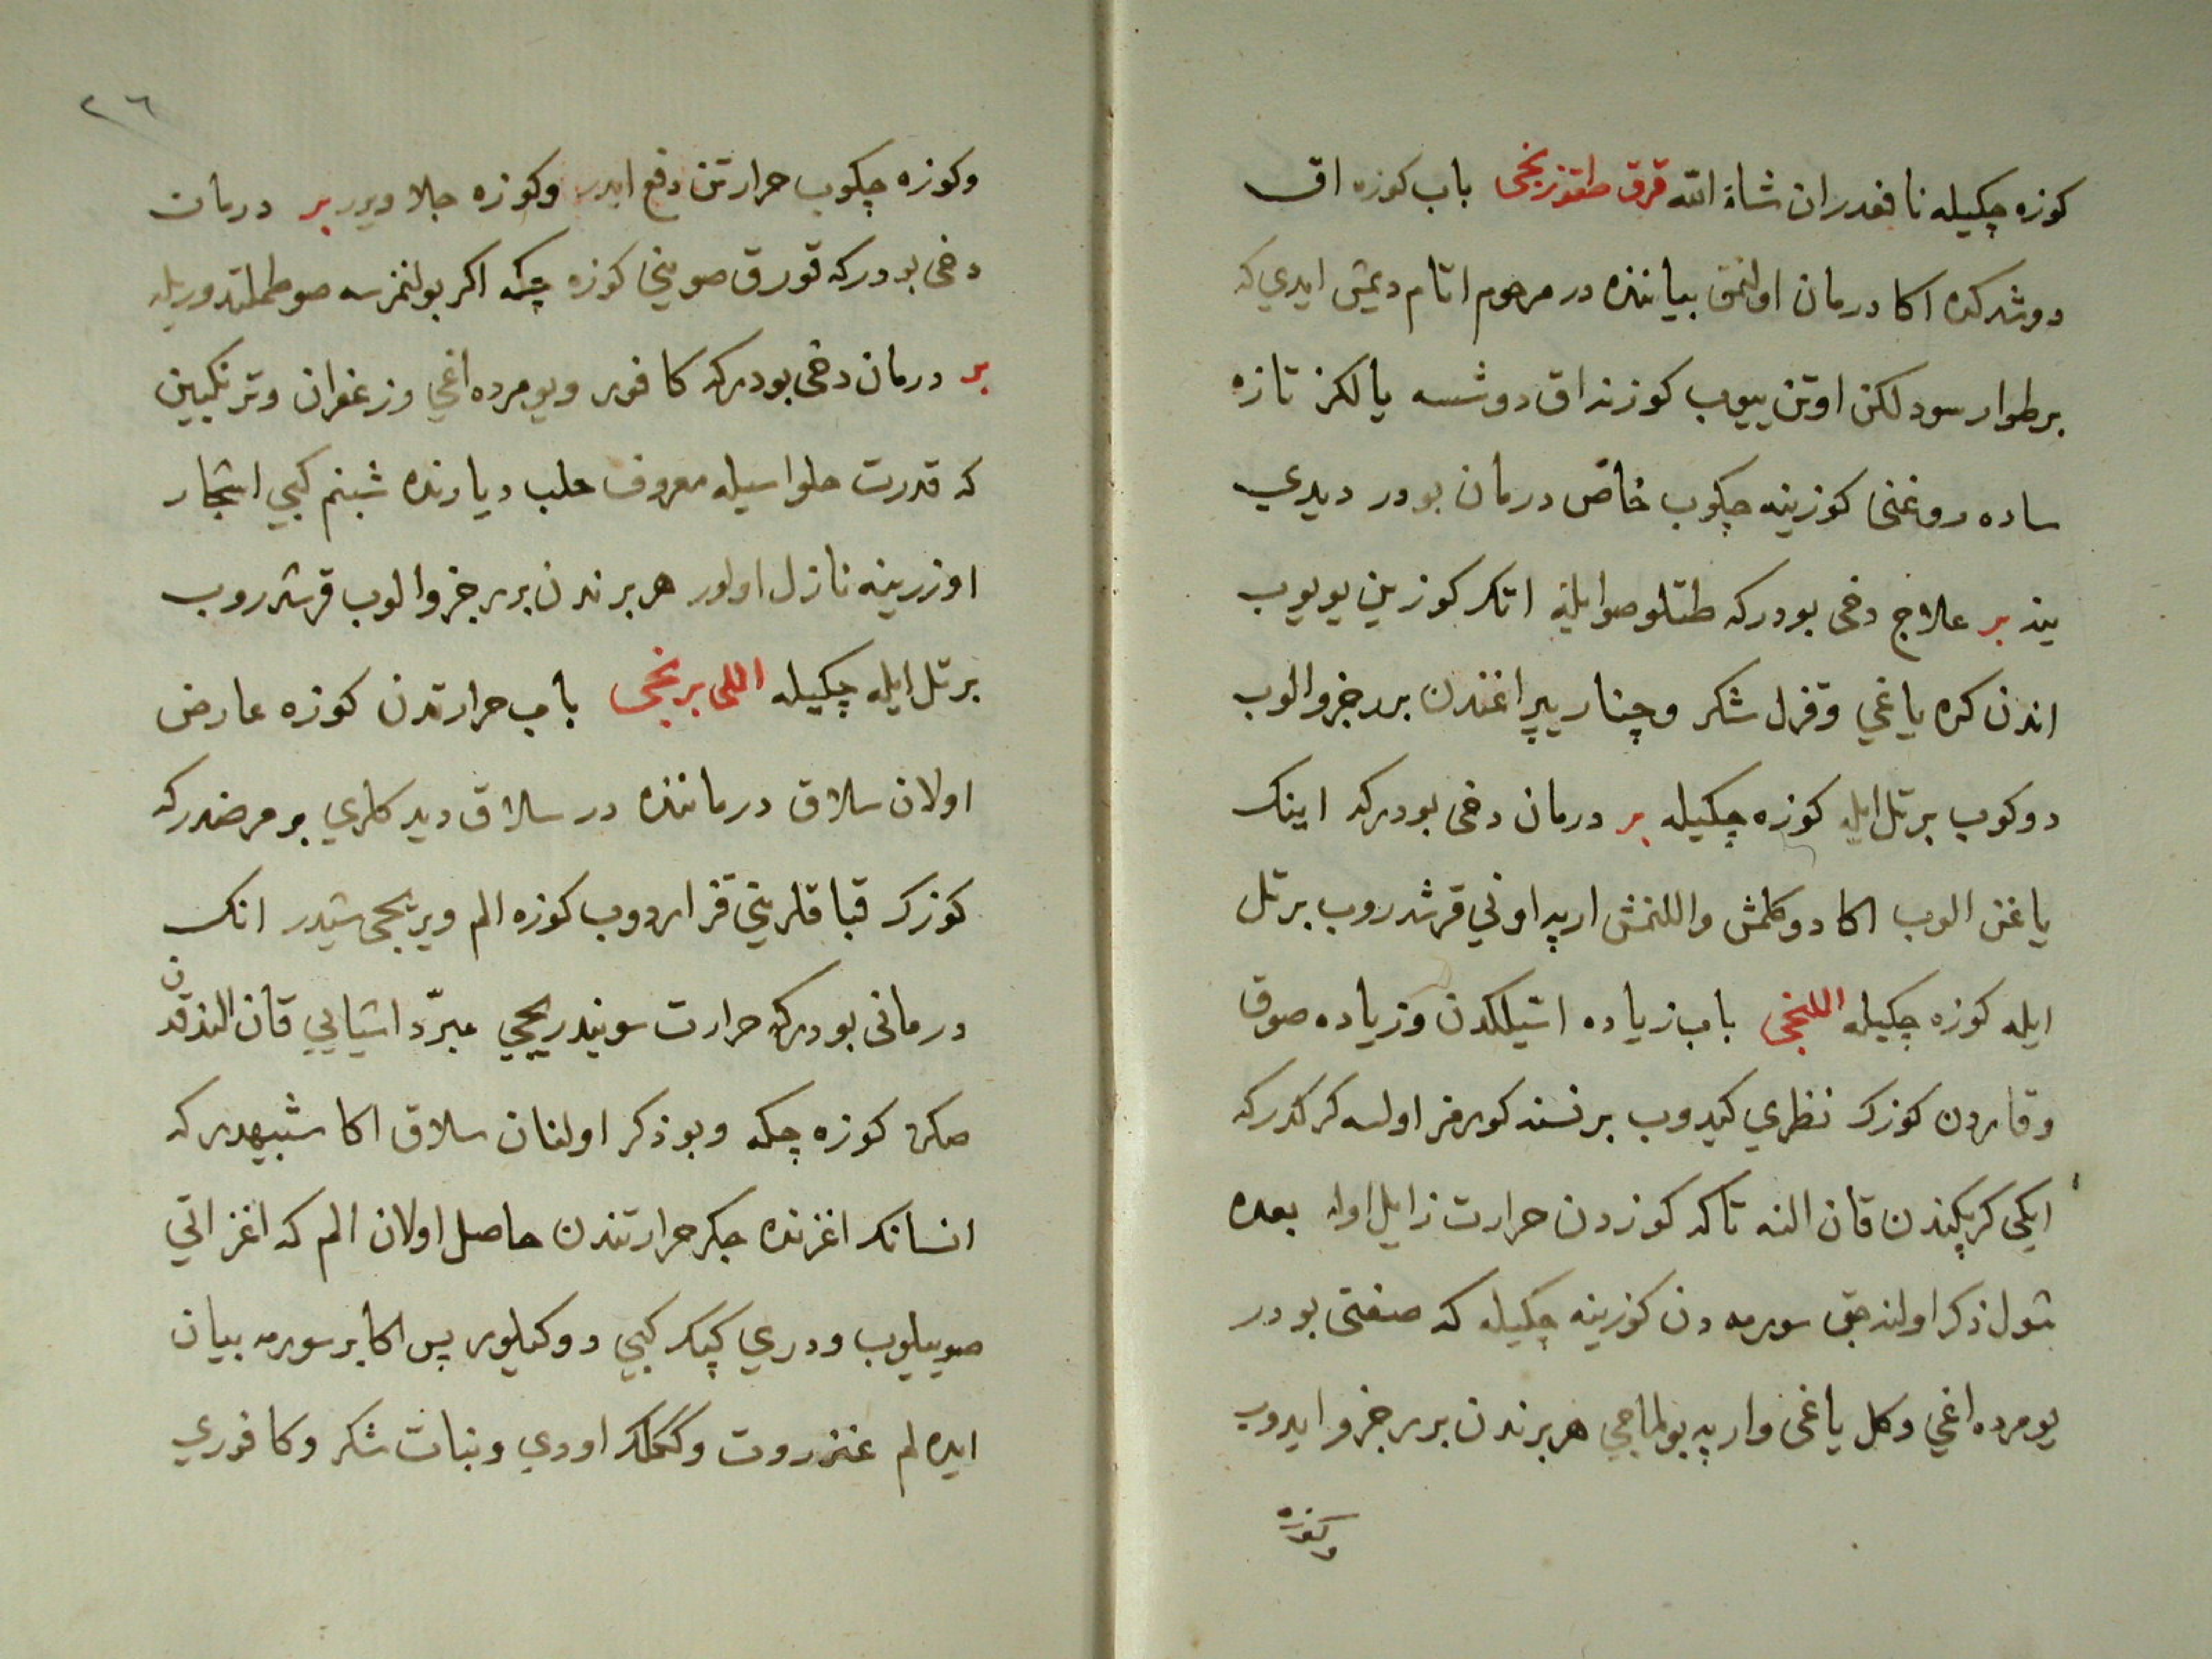 كوزه چكيله نافعدر ان شاء الله قرق طقوزنجى باب كوزه اق
دوشدكده اكا درمان اولنمق بياننده در مرحوم اتام ديمش ايدي كه
بر طوار سود لكن اوتن ييوب كوزنه اق دوشسه يالكز تازه
ساده روغنى كوزينه چكوب خاص درمان بودر ديدي
ينه بر علاج دخى بودركه طتلو صو ايله اتك كوزين يويوب
اندن كره ياغي وقزل شكر وچنار يپراغندن برر جزو الوب
دوكوب بر تل ايله كوزه چكيله بر درمان دخى بودركه اينك
ياغن الوب اكا دوكلمش واللنمش ارپه اوني قرشدروب بر تل
ايله كوزه چكيله اللنجى باب زياده اسيلكدن وزياده صوق
وقاردن كوزك نظري كيدوب بر نسنه كورمز اولسه كركدركه
ايكي كرپكندن قان النه تاكه كوزدن حرارت زايل اوله بعده
شول ذكر اولنه جق سورمه دن كوزينه چكيله كه صفتى بودر
يومرده اغي وكل ياغى وارپه بولماجي هر برندن برر جزو ايدوب
وكوزه
٢٦
وكوزه چكوب حرارتن دفع ايدر وكوزه جلا ويرر بر درمان
دخى بودركه قورق صويني كوزه چكه اكر بولنمزسه صو طملتدوريله
بر درمان دخى بودركه كافور ويومرده اغي وزعفران وترنكبين
كه قدرت حلواسيله معروف حلب ديارنده شبنم كبي اشجار
اوزرينه نازل اولور هر برندن برر جزو الوب قرشدروب
بر تل ايله چكيله اللى برنجى باب حرارتدن كوزه عارض
اولان سلاق درماننده در سلاق ديدكلري بر مرضدركه
كوزك قباقلريني قزاردوب كوزه الم ويريجى شيدر انك
درمانى بودركه حرارت سوينديريجي مبرّد اشيايي قان النذقدن
صكره كوزه چكه وبو ذكر اولنان سلاق اكا شبيهدركه
انسانك اغزنده جكر حرارتندن حاصل اولان الم كه اغز اتي
صوييلوب ودري كپك كبي دوكيلور پس اكا بر سورمه بيان
ايده لم عنزروت وككلك اودي ونبات شكر وكافوري